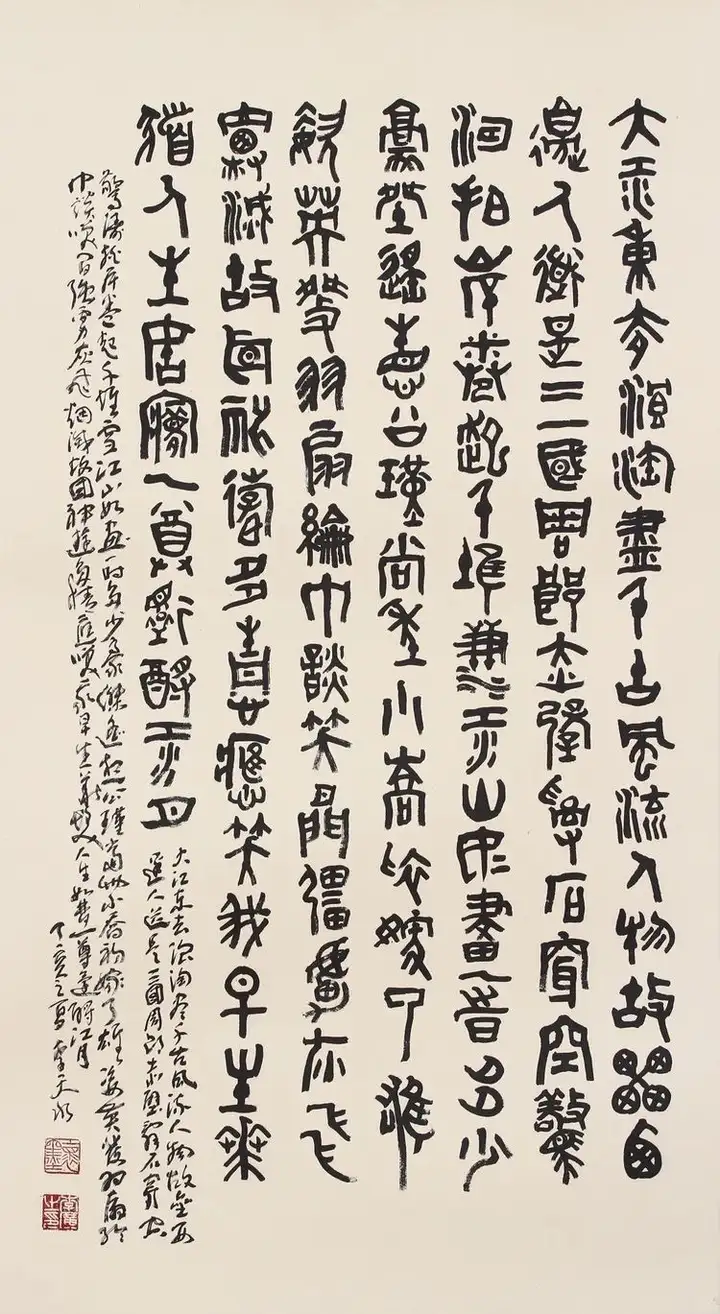 大江東去浪淘盡千古風流人物故壘西
邊人道是三國周郎赤壁亂石穿空驚
濤拍岸卷起千堆雪江山如畫一時多少
豪傑遙想公瑾當年小喬初嫁了雄
姿英發羽扇綸巾談笑間強虜灰飛
煙滅故國神遊多情應笑我早生華
髮人生如夢一尊還酹江月
大江東去浪淘盡千古風流人物故壘西
邊人道是三國周郎赤壁亂石穿空
驚濤拍岸卷起千堆雪江山如畫一時多少豪傑遙想公瑾當年小喬初嫁了雄姿英發羽扇綸
巾談笑間強虜灰飛煙滅故國神遊多情應笑我早生華髮人生如夢一尊還酹江月
丁亥之夏